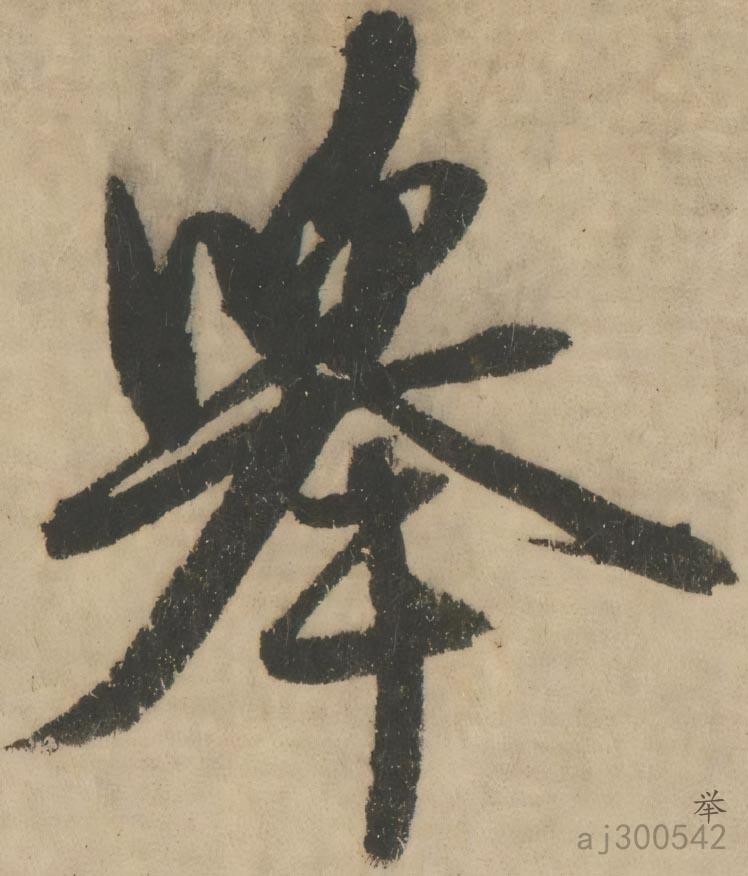 舉
举
aj300542